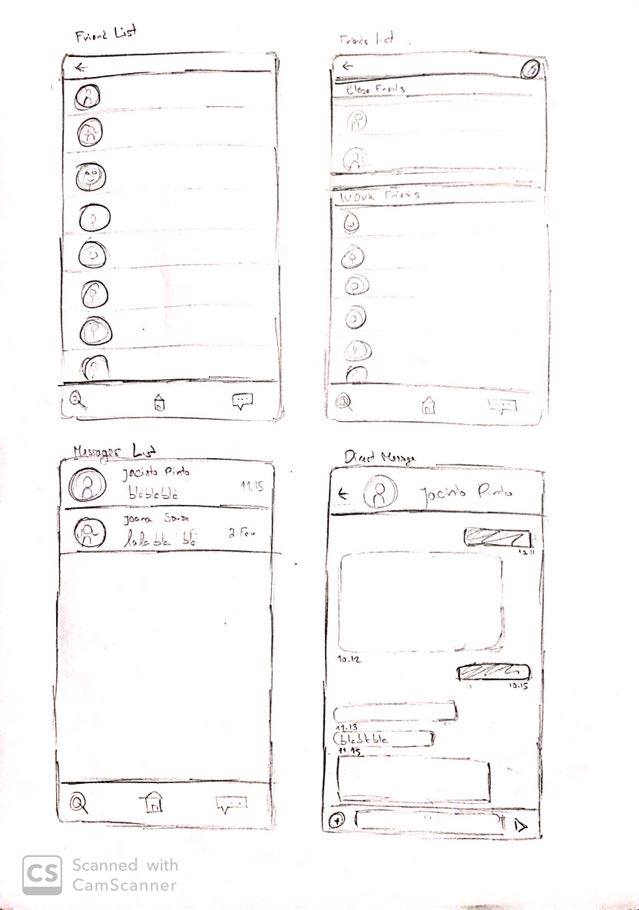 Friend List
Friends list
Close Friends
Work Friends
Messager List
Jacinto Pinto
blablabla
11.15
Joana Sousa
lala bla blé
2 Fev
Direct Message
Jacinto Pinto
10.12
10.15
11.13
blablabla
11.15
CS Scanned with
CamScanner